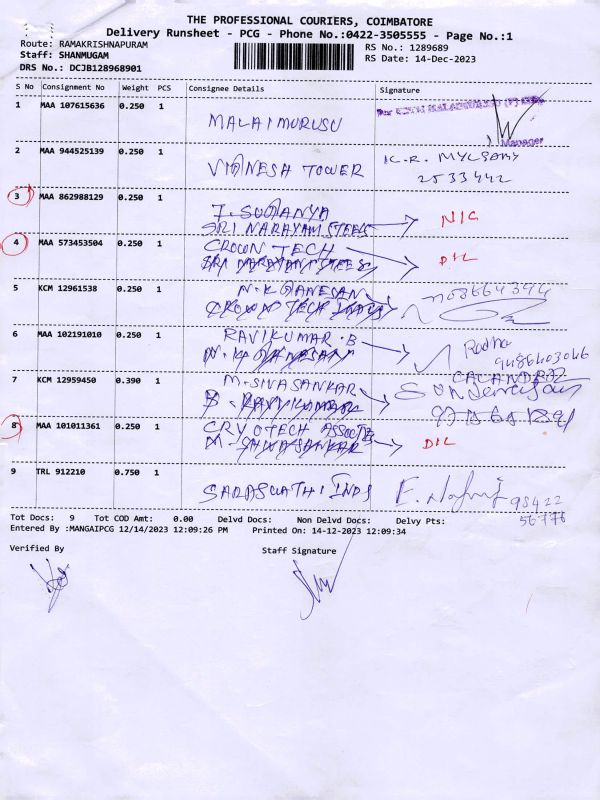 THE PROFESSIONAL COURIERS, COIMBATORE
Delivery Runsheet - PCG - Phone No.:0422-3505555 - Page No.:1
Route: RAMAKRISHNAPURAM
RS No.: 1289689
Staff: SHANMUGAM
RS Date: 14-Dec-2023
DRS No.: DCJB128968901
S No Consignment No Weight PCS Consignee Details Signature
1 MAA 107615636 0.250 1
MALAIMURUSU
Manager
2 MAA 944525139 0.250 1
VIGNESH TOWER
K.R. MYLSAMY
2533442
3 MAA 862988129 0.250 1
T. SUGANYA
SRI NARAYAN STEELS
NIC
4 MAA 573453504 0.250 1
CROWN TECH
SRI NARAYAN STEELS
DIL
5 KCM 12961538 0.250 1
N.K GANESAN
CROWN TECH INDS
6 MAA 102191010 0.250 1
RAVIKUMAR.B
N.K GANESAN
Radha
9486403046
7 KCM 12959450 0.390 1
M. SIVASANKAR
B. RAVIKUMAR
8 MAA 101011361 0.250 1
CRYOTECH ASSOCTE
M. SIVASANKAR
DIL
9 TRL 912210 0.750 1
SARASWATHI INDS
98422
56776
Tot Docs: 9 Tot COD Amt: 0.00 Delvd Docs: Non Delvd Docs: Delvy Pts:
Entered By :MANGAIPCG 12/14/2023 12:09:26 PM Printed On: 14-12-2023 12:09:34
Verified By Staff Signature